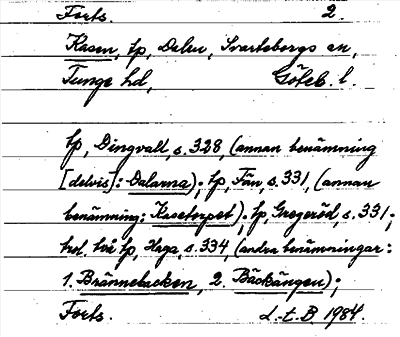 Forts. 2.
Kasen, tp, Dalen, Svarteborgs sn,
Tunge hd, Göteb. l.
tp, Dingvall, s. 328, (annan benämning
[delvis]: Dalarna); tp, Fän, s. 331, (annan
benämning: Kasetorpet); tp, Gregeröd, s. 331;
två tp, Haga, s. 334 (andra benämningar:
1. Brännebacken, 2. Bäckängen);
Forts. L.-t. B. 1984.